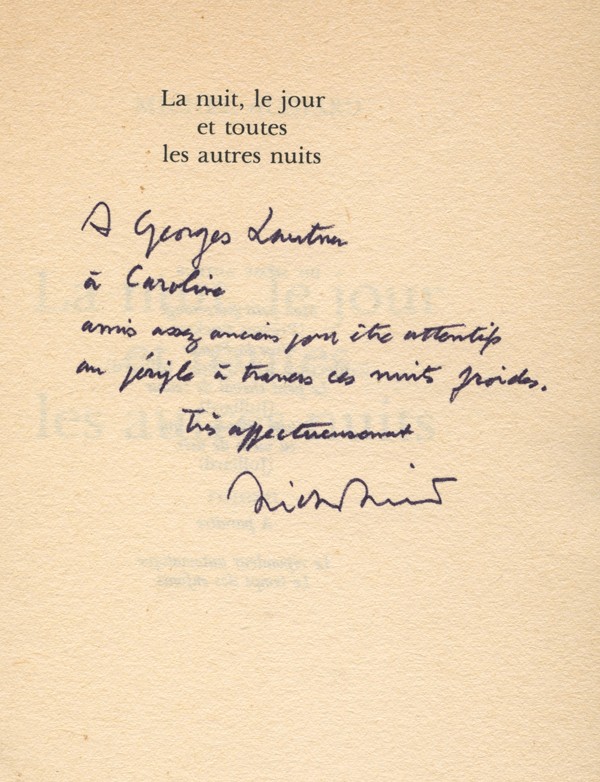 La nuit, le jour
et toutes
les autres nuits
A Georges Lautner
à Caroline
amis assez anciens pour être attentifs
au périple à travers ces nuits froides.
Très affectueusement